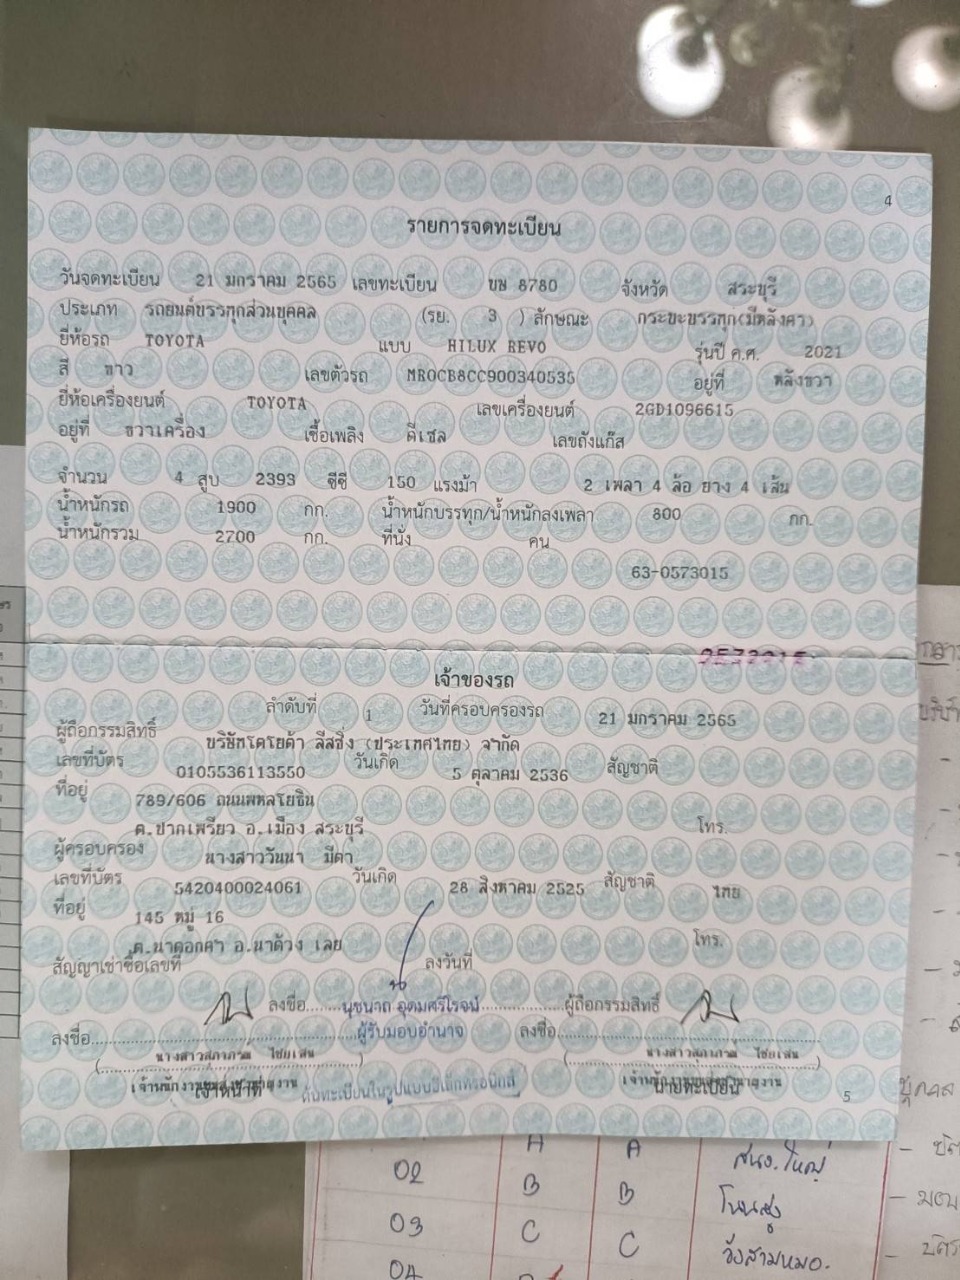 4
รายการจดทะเบียน
วันจดทะเบียน 21 มกราคม 2565 เลขทะเบียน ขษ 8780 จังหวัด สระบุรี
ประเภท รถยนต์บรรทุกส่วนบุคคล (รย. 3 ) ลักษณะ กระบะบรรทุก(มีหลังคา)
ยี่ห้อรถ TOYOTA แบบ HILUX REVO รุ่นปี ค.ศ. 2021
สี ขาว เลขตัวรถ MR0CB8CC900340535 อยู่ที่ หลังขวา
ยี่ห้อเครื่องยนต์ TOYOTA เลขเครื่องยนต์ 2GD1096615
อยู่ที่ ขวาเครื่อง เชื้อเพลิง ดีเซล เลขถังแก๊ส
จำนวน 4 สูบ 2393 ซีซี 150 แรงม้า 2 เพลา 4 ล้อ ยาง 4 เส้น
น้ำหนักรถ 1900 กก. น้ำหนักบรรทุก/น้ำหนักลงเพลา 800 กก.
น้ำหนักรวม 2700 กก. ที่นั่ง คน
63-0573015
0573015
เจ้าของรถ
ลำดับที่ 1 วันที่ครอบครองรถ 21 มกราคม 2565
ผู้ถือกรรมสิทธิ์ บริษัทโตโยต้า ลีสซิ่ง (ประเทศไทย) จำกัด
เลขที่บัตร 0105536113550 วันเกิด 5 ตุลาคม 2536 สัญชาติ
ที่อยู่ 789/606 ถนนพหลโยธิน
ต.ปากเพรียว อ.เมือง สระบุรี โทร.
ผู้ครอบครอง นางสาววันนา มีดา
เลขที่บัตร 5420400024061 วันเกิด 28 สิงหาคม 2525 สัญชาติ ไทย
ที่อยู่ 145 หมู่ 16
ต.นาดอกคำ อ.นาด้วง เลย โทร.
สัญญาเช่าซื้อเลขที่ ลงวันที่
ลงชื่อ นุชนาถ อุดมศรีโรจน์ ผู้ถือกรรมสิทธิ์
ลงชื่อ ผู้รับมอบอำนาจ ลงชื่อ
(นางสาวสุภาภวดี ไชยเสน) (นางสาวสุภาภวดี ไชยเสน)
เจ้าพนักงานขนส่งชำนาญงาน เจ้าพนักงานขนส่งชำนาญงาน
เจ้าหน้าที่ ต้นทะเบียนในรูปแบบอิเล็กทรอนิกส์ นายทะเบียน
5
A A
02 B B สนง.ใหญ่
03 C C โนนสูง
04 วังสามหมอ.